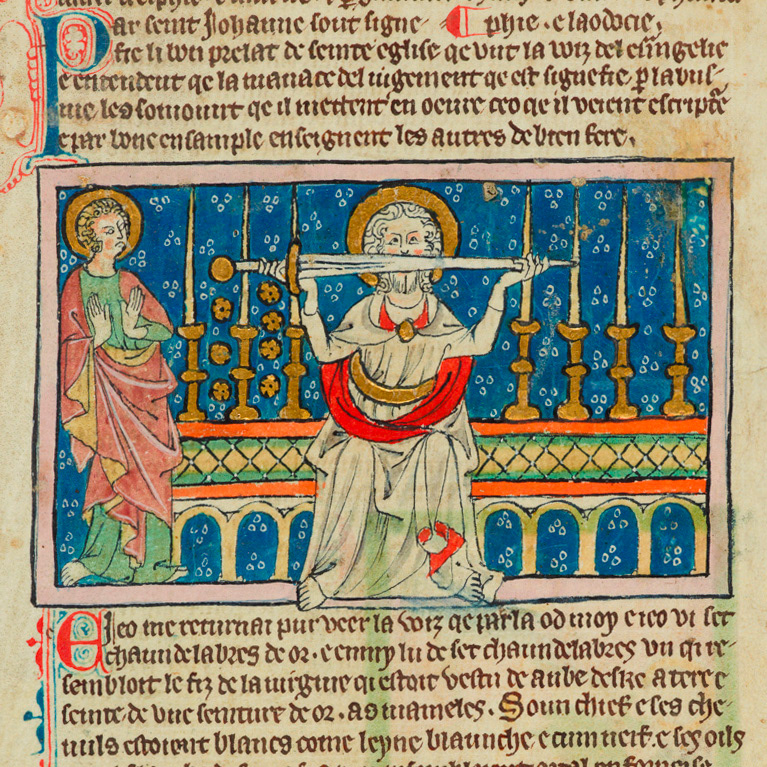 Par seint Johanne sont signe- phie. e laodocie,
fie li bon prelat de seinte eglise qe vnt la woiz del ewangelie
e entendent qe la manace del iugement qe est signefie p la bus-
ne les somount qe il mettent en oeure ceo qe il veient escripte
e par bone ensample enseignent les autres de bien fere,
E Ieo me returnai pur veer la woiz qe parla od moy e ieo vi set
chaundelabres de or. e enmy lu de set chaundelabres vn qi re-
sembloit le fiz de la uirgine qi estoit vestu de aube desqe a terre e
seinte de vne seinture de or. as mameles. Soun chief e ses che-
uuls estoient blancs come leyne blaunche. e cum neif. e ses oils